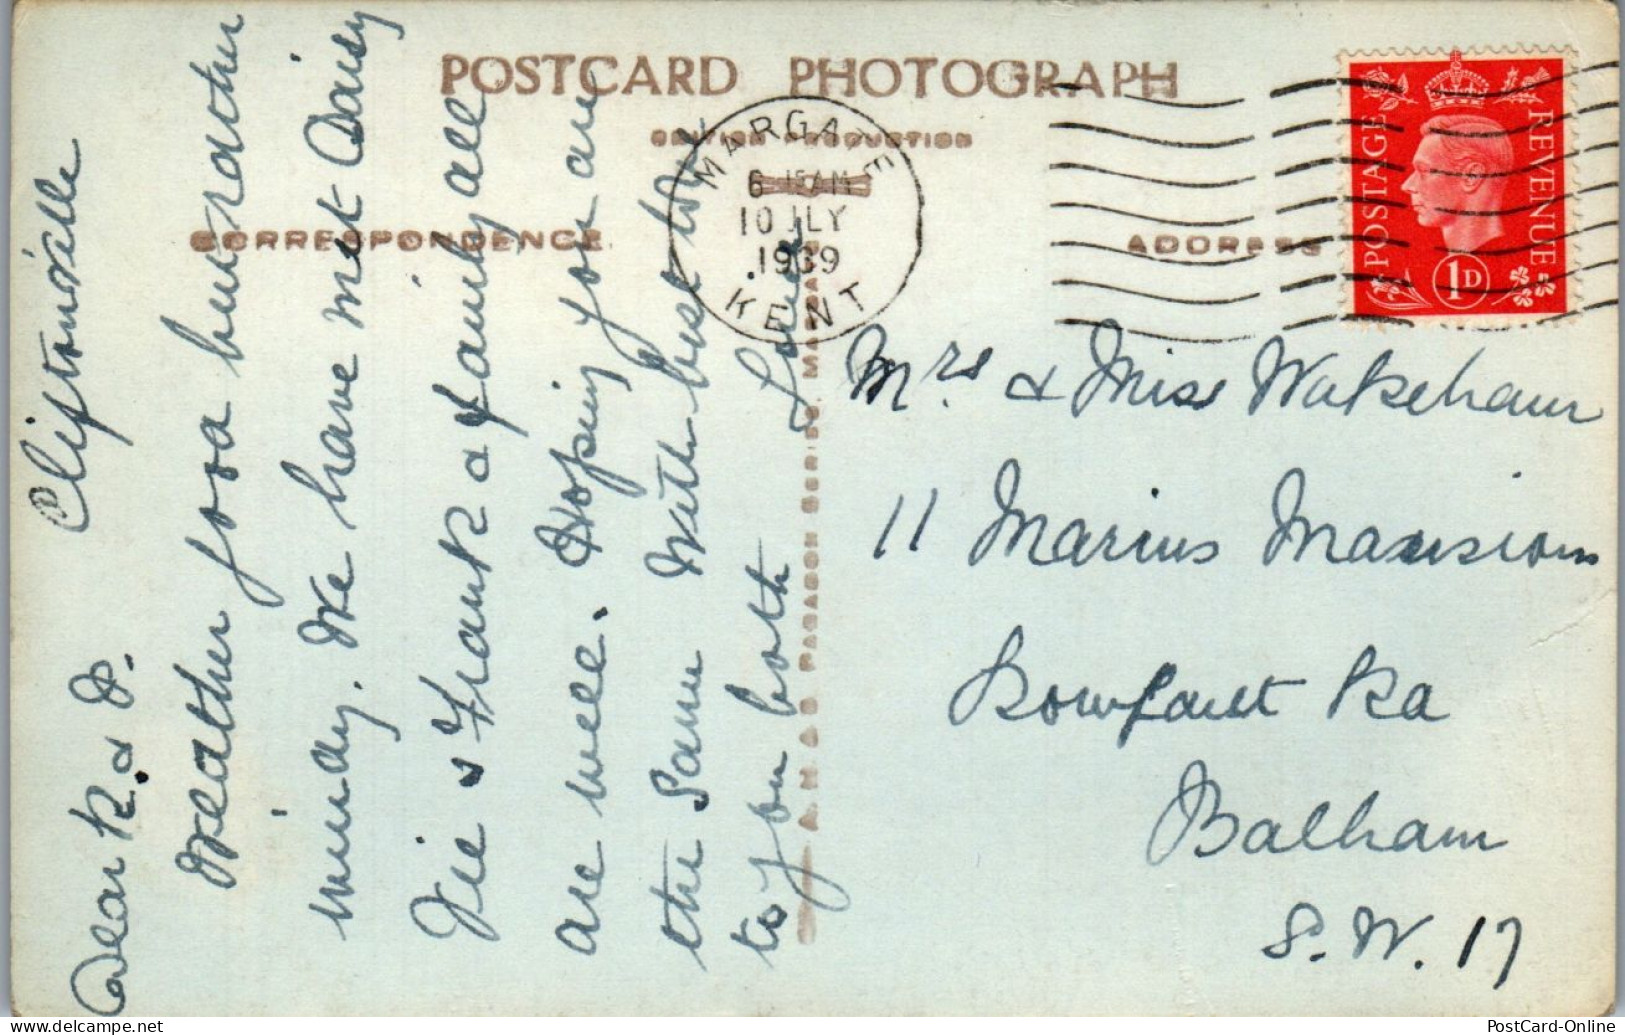 POSTCARD PHOTOGRAPH
BRITISH PRODUCTION
CORRESPONDENCE
ADDRESS
MARGATE
6 15AM
10 JLY
1939
KENT
POSTAGE
REVENUE
1D
A.H. & S. PARAGON SERIES. MARGATE
Cliftonville
Dear K. & D.
Weather fora but rather
windy. We have met Daisy
Vie & Frank & family all
are well. Hoping you are
the same With best love
to you both
Mrs & Miss Wakeham
11 Marius Mansions
Rowfant Rd
Balham
S.W. 17
PostCard-Online
delcampe.net